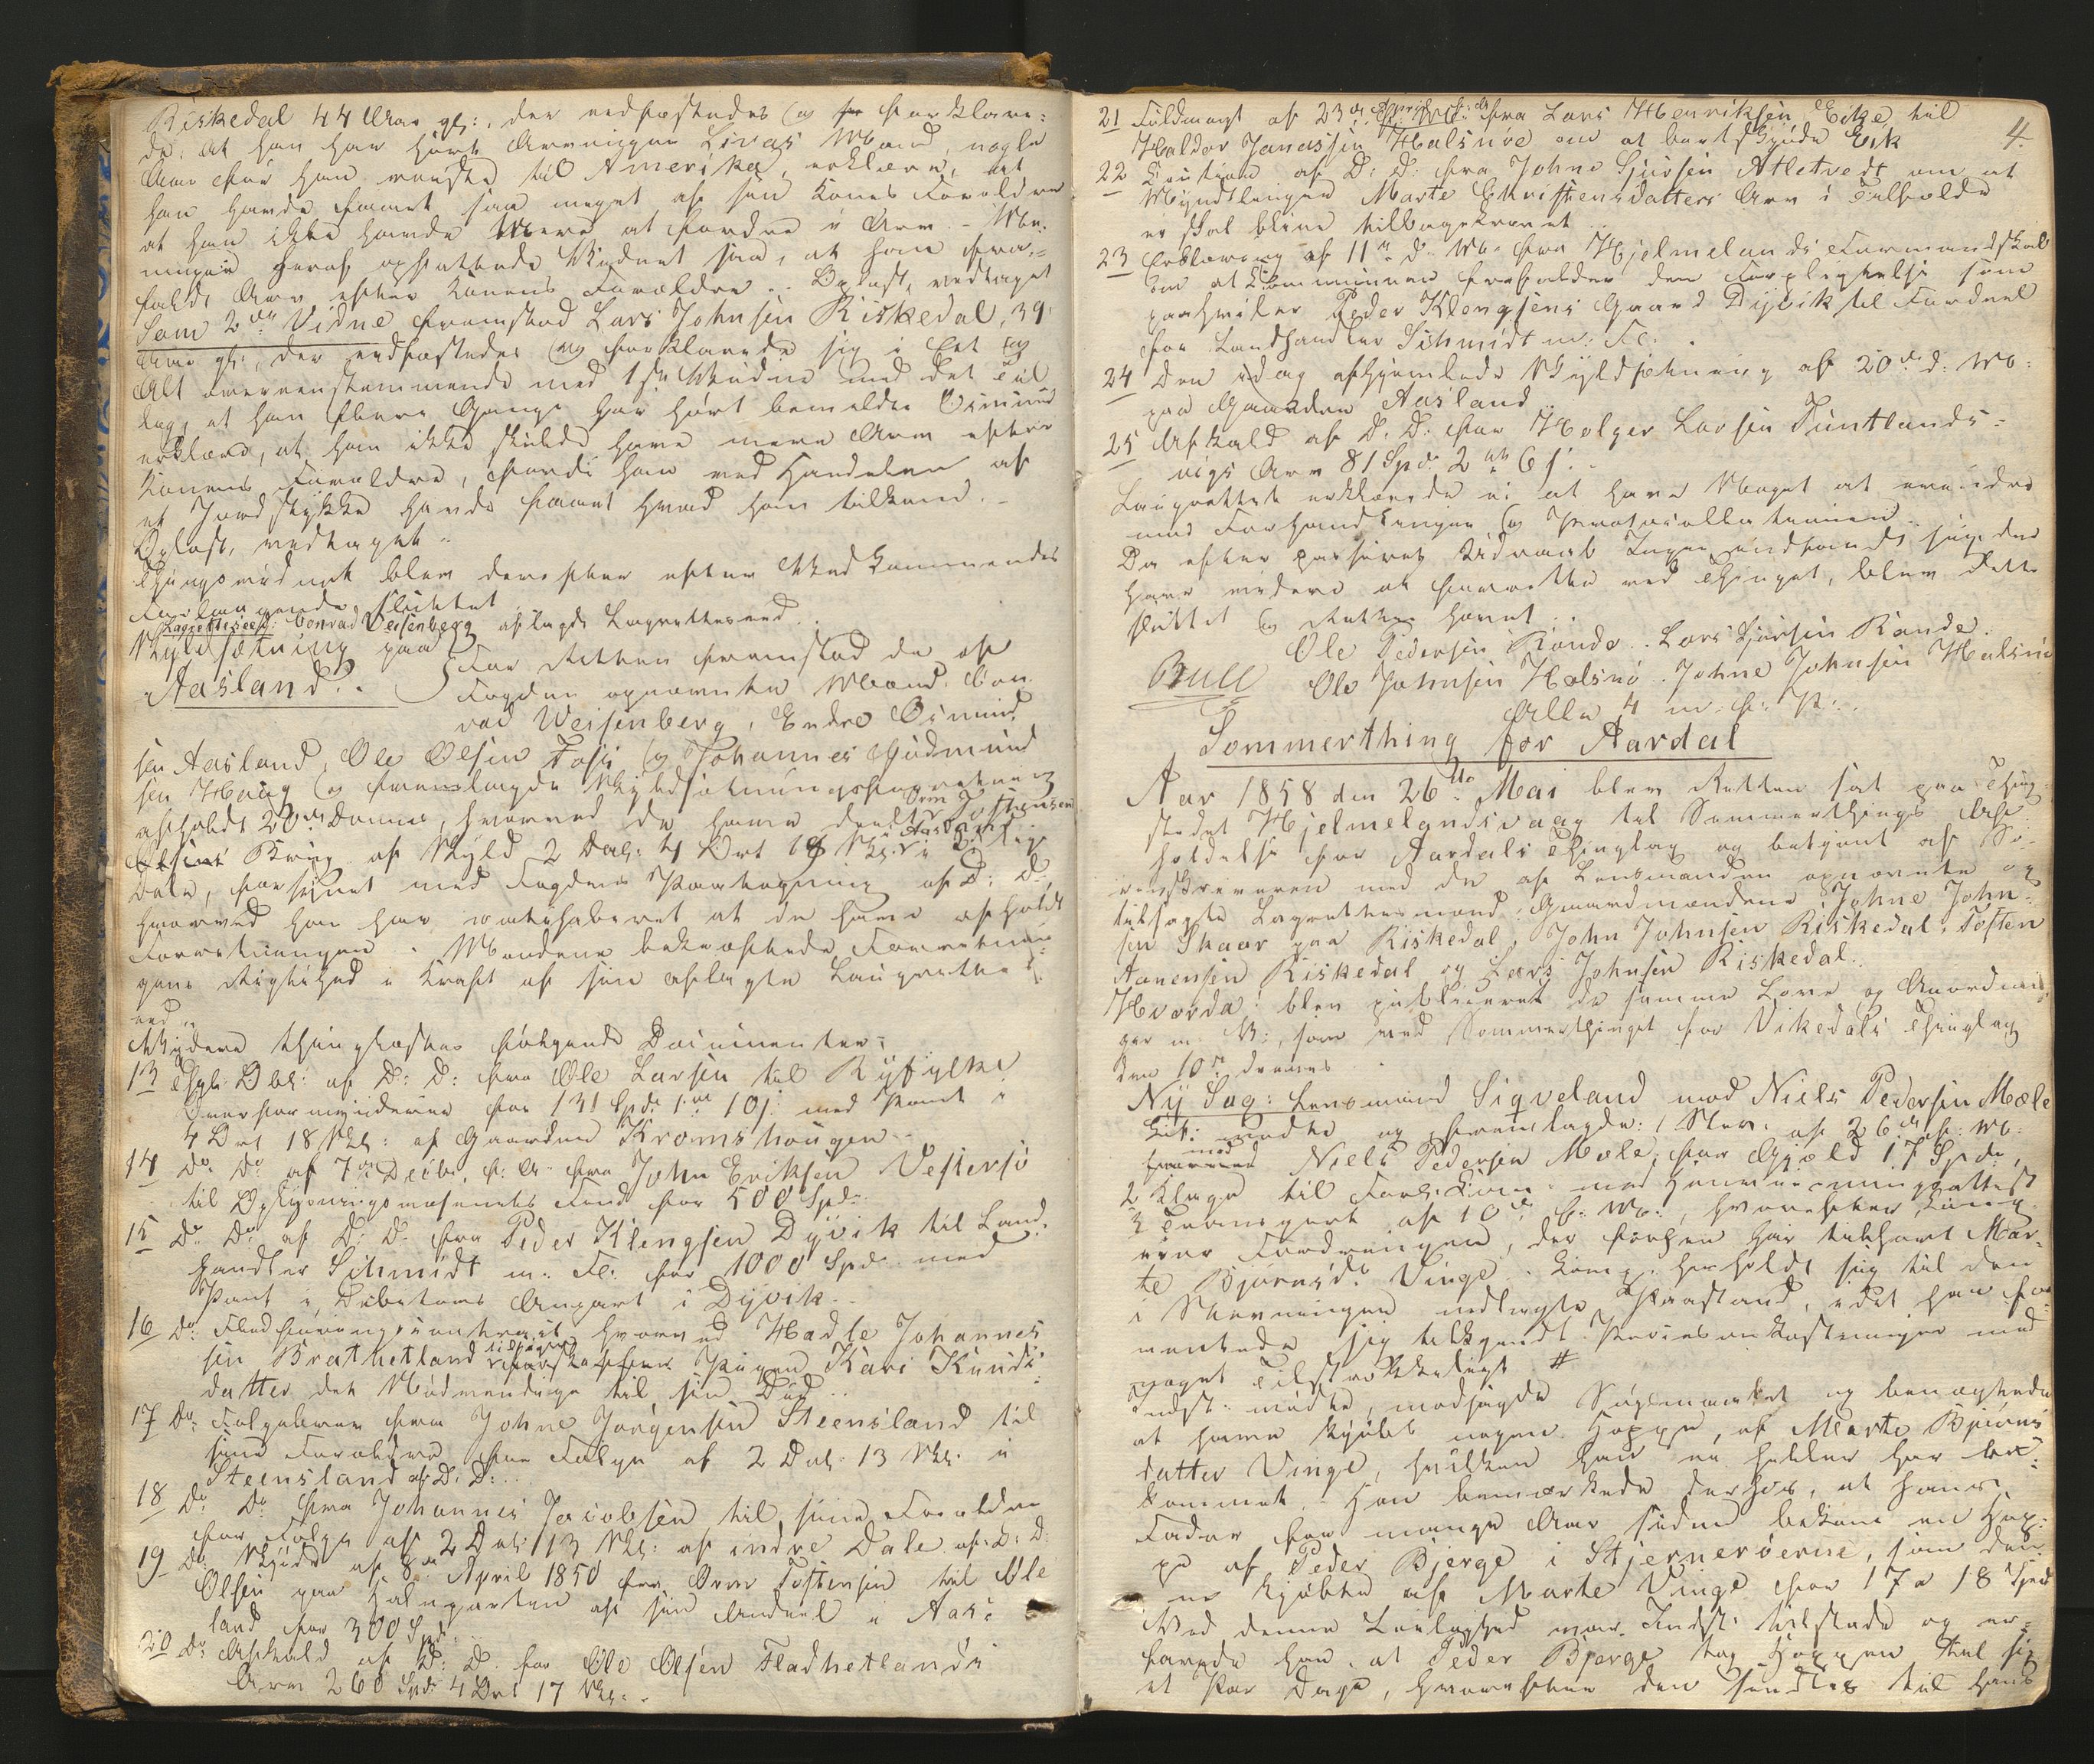 Riskedal 44 Aar gl:, der edfæstedes og forklare:
de, at han har hørt Arvingen Livas Mand, nogle
Aar før han reiste til Amerika, erklære, at
han havde faaet saa meget af sin Kones Forældre
at han ikke havde Mere at fordre i Arv - 
 heraf opfattede Vidnet saa, at han fra=
faldt Arv efter Konens Forældre.. Oplæst, vedtaget
Som 2det Vidne fremstod Lars Johnsen Riskedal, 39
Aar gl:, der edfæstedes og forklarede sig i Et og
Alt overeensstemmende med 1ste Vidne med det Til
læg, at han flere Gange har hørt bemeldte Osmund
erklære, at han ikke skulde have mere Arv efter
Konens Forældre, fordi han ved Handelen af
et Jordstykke havde faaet hvad ham tilkom. -
Oplæst, vedtaget..
Thingsvidnet blev derefter efter Vedkommendes
Forlangende sluttet
Lagrettseed: Conrad Veisenberg aflagde Lagretteseed..
Skyldsætning paa
Aasland.. For Retten fremstod de af
Fogden opnævnte Mænd Con
rad Weisenberg, Endre Osmund
sen Aasland, Ole Olsen Foss og Johannes Gudmund
sen Haug og fremlagde Skyldsætningsforretning
afholdt 20de dennes, hvorved de have deelt Orm Tostensen
 Brug af Skyld 2 Dal: 4 Ort 18 Skl. i Aasland
Dale, forsynet med Fogdens Paategning af D: D:
hvorved han har ratihaberet at de have afholdt
Forretningen. Mændene bekræftede Forretnin
gens Rigtighed i Kraft af sin aflagte Laugrettes
eed..
Videre thinglæstes følgende Documenter:
13 Thgl: Obl: af D: D: fra Ole Larsen til Ryfylke
Overformynderie for 131 Spd. 1 ort 10 s. med Pant i
4 Ort 18 Skl: af Gaarden Kromshougen
14 Do Do af 7de Decbr. f: A: fra John Eriksen Vestersø
til Oplysningsvæsenets Fond for 500 Spd.
15 Do Do af D: D: fra Peder Klengsen Dyvik til Land=
handler Schmidt m: Fl: for 1000 Spd. med
Pant i Debitors Anpart i Dyvik..
16 Do: Fledføringscontract hvorved Hadle Johannes
sen Brathetland tilsikrer Pigen Kari Knuds
datter det Nødvendige til sin Død..
17 Do: Folgebrev fra Johne Jørgensen Steensland til
sine Forældre for Folge af 2 Dal: 13 Skl: i
Steensland af D: D:..
18 Do Do fra Johannes Jacobsen til sine Forældre
for Folge af 2 Dal: 13 Skl: af indre Dale af D: D:
19 Do Skjøde af 8de April 1850 fra Orm Tostensen til Ole
Olsen paa Halvparten af sin Andeel i Aas=
land for 300 Spd.
20 Do Afkald af D: D. for Ole Olsen Fladhetlands
Arv 260 Spd. 4 Ort 17 Skl:..
4.
21 Fuldmagt af 23de April f: A: fra Lars Henriksen Eike til
Haldor Janassen Halsnøe om at bortskjøde Eik
22 af D: D: fra Johne Sjursen Atletvedt om at
Myndtlingen Marte Christensdatters Arv i Tilfælde
ei skal blive tilbagekrævet..
23 Erklæring af 11te d: M: fra Hjelmelands Formandskab
om at Kommunen frafalder den Forpligtelse som
paahviler Peder Klengsens Gaard Dyvik til Fordeel
for Landhandler Schmidt m: Fl:.
24 Den idag afhjemlede Skyldsætning af 20de d: M:
paa Gaarden Aasland..
25 Afkald af D: D: for Holger Larsen Tuntlands=
vigs Arv 81 Spd. 2 ort 6 s..
Laugrettet erklærede ei at have Noget at erindre
mod Forhandlingen og Protocollationen..
Da efter passeret Udraab Ingen indfandt sig der
have videre at foredrage ved Thinget, blev dette
sluttet og Retten hævet..
Ole Pedersen Rande.. Lars Sjursen Rande.
Bull Ole Johnsen Halsnø. Johne Johnsen Halsnø
Alle 4 m: f: P:.
Sommerthing for Aardal
Aar 1858 den 26de Mai blev Retten sat paa Thing=
stedet Hjelmelandsvaag til Sommerthings Af=
holdelse for Aardals Thinglag og betjent af So=
renskriveren med de af Lensmanden opnævnte og
tilsagte Lagrettesmænd: Gaardmændene: Johne John=
sen Skaar paa Riskedal, John Johnsen Riskedal, Tosten
Aanensen Riskedal og Lars Johnsen Riskedal..
Hvorda: blev publiceret de samme Love og Anordnin
ger m: V:, som ved Sommerthinget for Vikedals Thinglag
den 10de dennes
Ny Sag: Lensmand Siqveland mod Niels Pedersen Mæle
Cit: mødte og fremlagde: 1 Stev: af 26de f: M:
mod Niels Pedersen Mæle, for Gjæld 17 Spd.,
2 Klage til Forl: Com: med Henviisningsattest
3 Transport af 10de f: M:, hvorefter Comp.
eier Fordringen, der forhen har tilhørt Mar=
te Bjørnsd. Vinge. Comp. henholdt sig til den
i Stevningen nedlagte Paastand, idet han for
mente sig tilkjendt Procesomkostninger med
noget Tilstrækkeligt. #
Indst: mødte, modsagde Søgsmaalet og benægtede
at have kjøbt nogen Hoppe af Marte Bjørns
datter Vinge, hvilken han ei heller har be=
kommet. - Han bemærkede derhos, at hans
Fader for mange Aar siden bekom en Hop=
pe af Peder Bjerge i Stjernerøerne, som den=
ne kjøbte af Marte Vinge for 17 a 18 Spd.
Ved denne Leilighed var Indst: tilstede og er=
farede han, at Peder Bjerge tog Hoppen til sig
et Par Dage, hvorefter den sendtes til hans